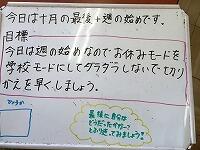 今日は十月の最後の週の始めです。
目標
今日は週の始めなのでお休みモードを
学校モードにしてダラダラしないで切り
かえを早くしましょう。
最後に自分は
どうだったか
ふり返ってみましょう!